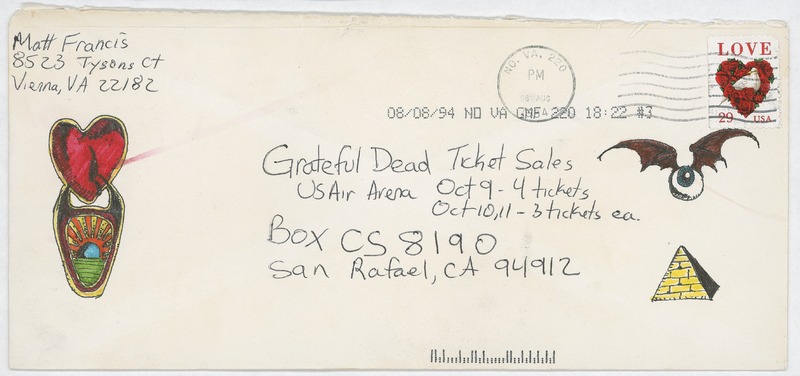 Matt Francis
8523 Tysons Ct
Vienna, VA 22182
NO. VA. 220
PM
USA
08/08/94 NO VA GMF 220 18:22 #3
LOVE
29 USA
Grateful Dead Ticket Sales
USAir Arena Oct 9 - 4 tickets
Oct 10,11 - 3 tickets ea.
Box CS 8190
San Rafael, CA 94912